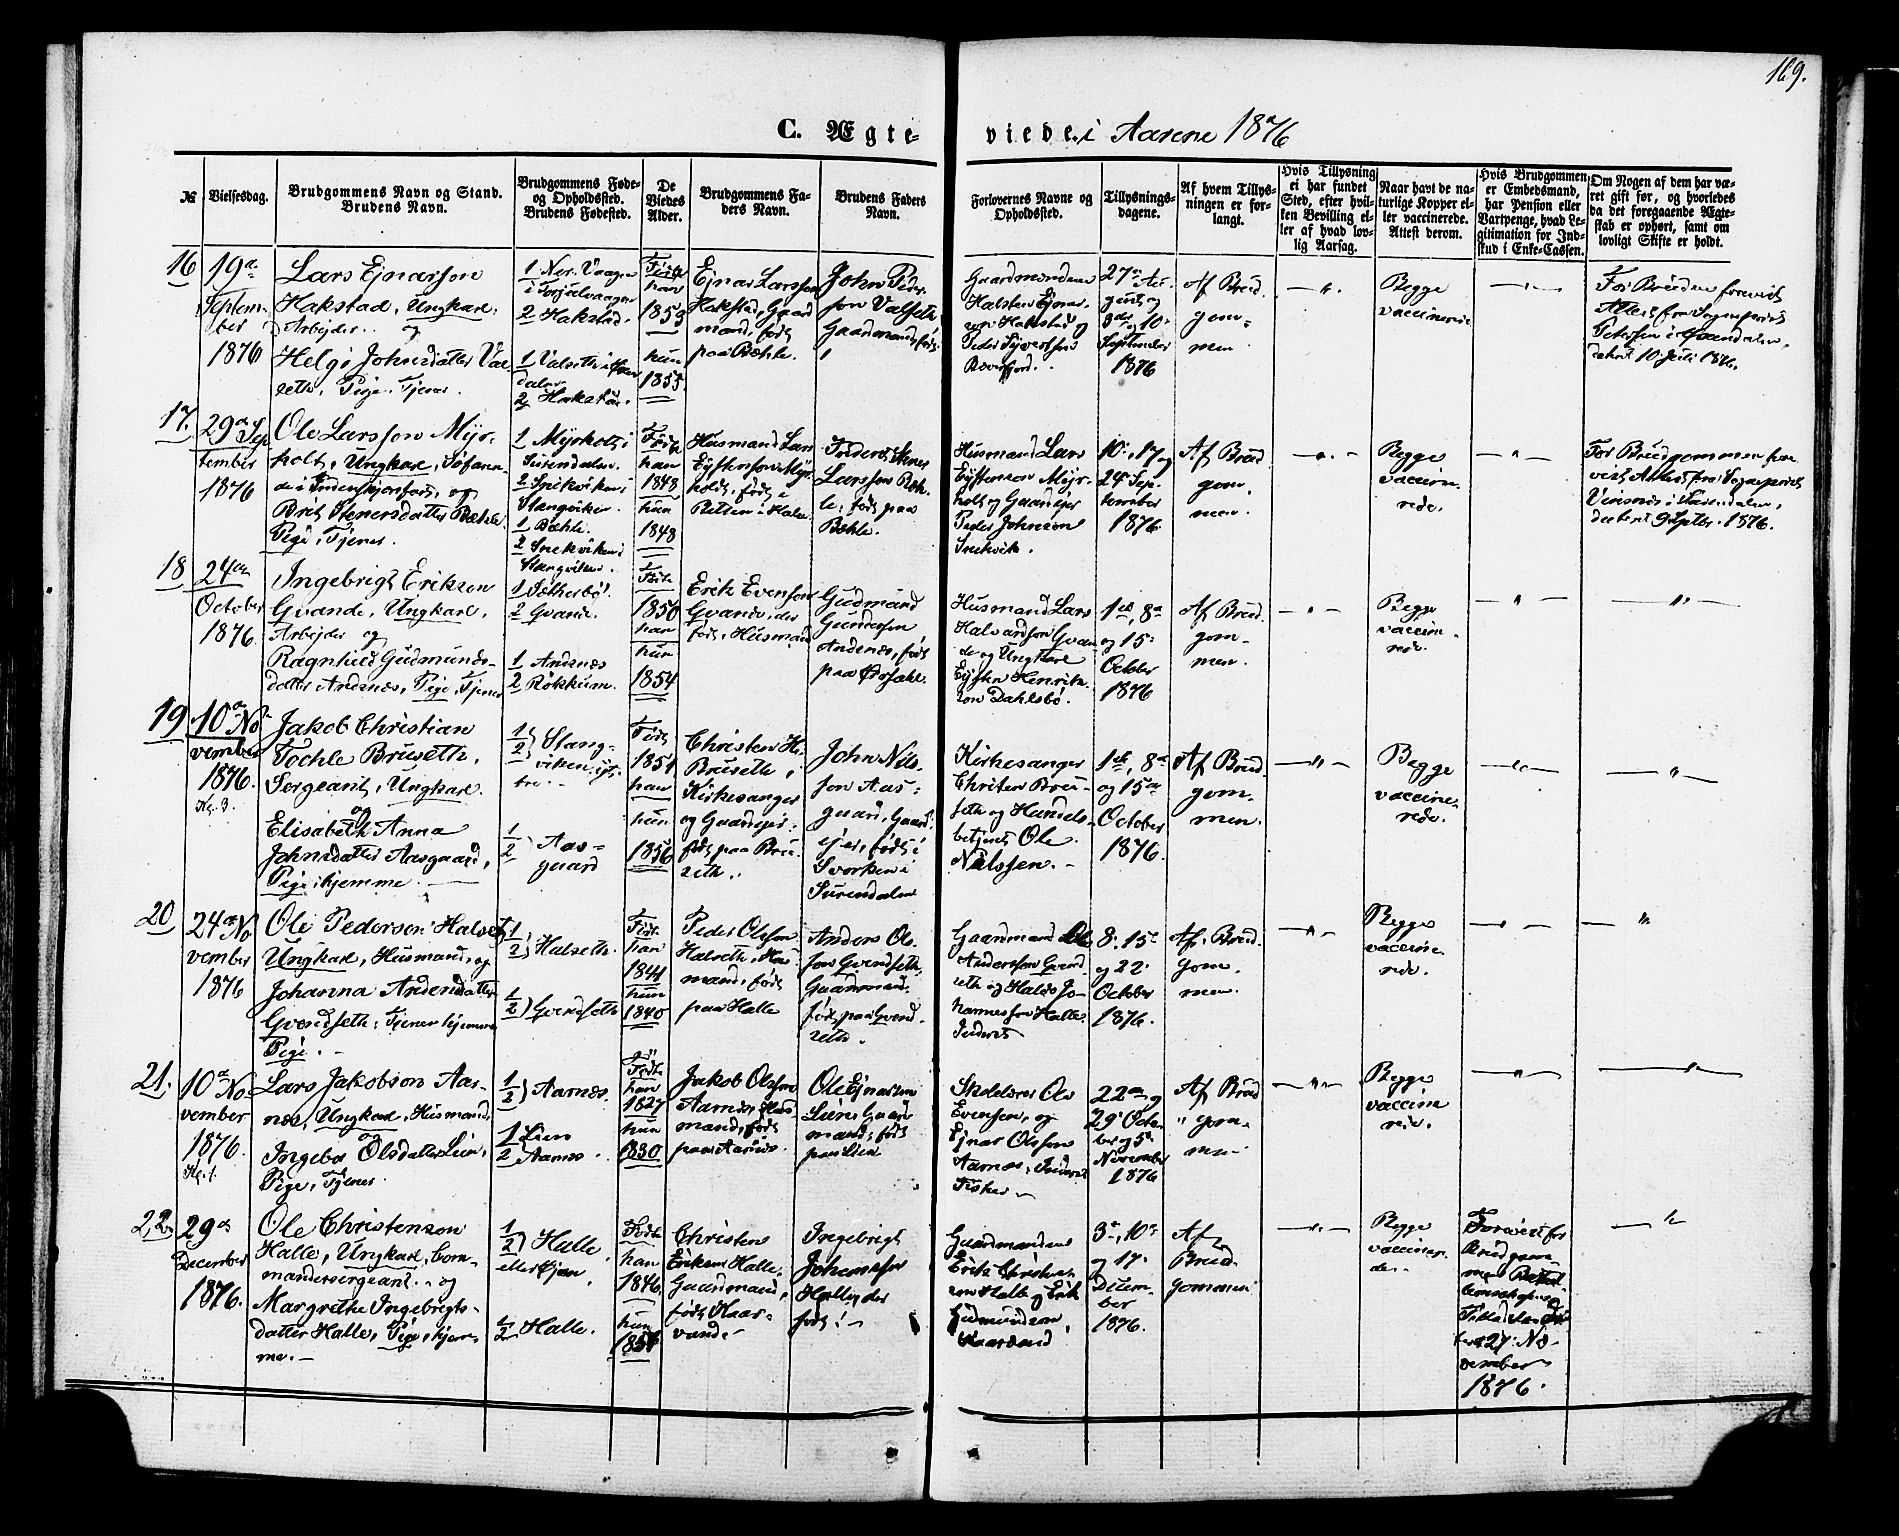 169.
C. Ægteviede i Aarene 1876
№
Vielsesdag.
Brudgommens Navn og Stand.
Brudens Navn.
Brudgommens Føde-
og Opholdssted.
Brudens Fødested.
De
Viedes
Alder.
Brudgommens Fa-
ders Navn.
Brudens Faders
Navn.
Forlovernes Navne og
Opholdssted.
Tillysnings-
dagene.
Af hvem Tillys-
ningen er for-
langt.
Hvis Tillysning
ei har fundet
Sted, efter hvil-
ken Bevilling el-
ler af hvad lov-
lig Aarsag.
Naar havt de na-
turlige Kopper el-
ler vaccinerede.
Attest derom.
Hvis Brudgommen
er Embedsmand,
har Pension eller
Vartpenge, hvad Le-
gitimation for Ind-
skud i Enke-Cassen.
Om Nogen af dem har væ-
ret gift før, og hvorledes
da det foregaaende Ægte-
skab er ophørt, samt om
lovligt Skifte er holdt.
16
19de
Septem-
ber
1876
Lars Ejnarson
Hakstad, Ungkarl,
Arbejder og
Helgi Johnsdatter Val-
seth, Pige, Tjener.
2 Hakstad.
1 Valseth i
2 Hakstad.
Født
han
1853
hun
1855
Ejnar Larsson
Hakstad, Gaard
mand, født
paa Bæhle.
John Peder
son Valseth
Gaardmand, født
Gaardmændene
Halsten Ejnar-
son Hakstad og
Peder Sivertsson
27de Au-
gust og
3die og 10
September
1876
Af Brud-
gom-
men
Begge
vaccinerede
For Bruden forevist
Attest fra Sognepræst
Petersen i
datert 10 Juli 1876.
17.
29de Sep
tember
1876
Ole Larsson Myr-
holt, Ungkarl, Søfaren-
de i Indenskjærsfart, og
Brit Stenersdatter Bæhle
Pige, Tjener.
1 Myrholt i
Surendalen.
2 Snekviken i
Stangviken.
1 Bæhle.
2 Snekviken i
Stangviken.
Født
han
1848
hun
1848
Husmand Lars
Eystensson Myr-
holt, født i
Inderst Stener
Larsson Bæh-
le, født paa
Bæhle.
Husmand Lars
Eystenson Myr-
holt og Gaardejer
Peder Johnson
Snekvik.
10, 17 og
24 Sep-
tember
1876
Af Brud
gom-
men.
Begge
vaccine-
rede.
For Brudgommen fore-
vist Attest fra Sognepræst
i Surendalen,
datert 9 Septbr. 1876.
18
24de
October
1876.
Ingebrigt Erikson
Gvande, Ungkarl,
Arbejder og
Ragnhild Gudmunds-
datter Andsnæs, Pige, Tjener
1 Sætherbø.
2 Gvande.
1 Andsnæs
2 Røkkum.
Født
1850
han
hun
1854
Erik Evenson
Gvande, der
født, Husmand
Gudmund
Gunderson
Andsnæs, født
paa
Husmand Lars
Halvardson Gvan
de og Ungkarl
Eysten Henrik-
son Dahlsbø.
1ste, 8de
og 15
October
1876
Af Brud
gom-
men.
Begge
vaccine-
rede.
19
10de No-
vember
1876.
Kl. 3.
Jakob Christian
Tochle Bruseth,
Sergeant, Ungkarl
og
Elisabeth Anna
Johnsdatter Aasgaard,
Pige, hjemme.
1
2 Stang-
viken
1
2 Aas-
gaard
Født
1851
han
hun
1856
Christen
Bruseth,
Kirkesanger
og Gaardejer,
født paa Bru-
seth.
John Nils-
son Aas-
gaard, Gaard-
ejer, født i
Svorken i
Surendalen
Kirkesanger
Christen Bru-
seth og Handels-
betjent Ole
Nilssen.
1ste, 8de
og 15de
October
1876.
Af Brud
gom-
men.
Begge
vaccine-
rede.
20
24de No-
vember
1876
Ole Pederson Halseth
Ungkarl, Husmand, og
Johanna Andersdatter
Gvendseth, Tjener hjemme
Pige.
1
2 Halseth.
1
2 Gvendseth
Født
han
1841
hun
1840
Peder Olsson
Halseth, Hus-
mand, født
paa Halle
Anders Ol-
son Gvendseth,
Gaardmand,
født paa Gvend-
seth.
Gaardmand Ole
Andersson Gvend
seth og Halvor Jo-
hannesson Halle
Inderst
8, 15
og 22
October
1876.
Af Brud-
gom-
men.
Begge
vaccine-
rede.
21.
10de No-
vember
1876.
Kl. 1.
Lars Jakobson Aar-
næs, Ungkarl, Husmand,
og
Ingebor Olsdatter Lien,
Pige, Tjener
1
2 Aarnæs.
1 Lien
2 Aarnæs.
Født
han
1827
hun
1830
Jakob Olsson
Aarnæs, Hus-
mand, født
paa Aarnæs.
Ole Ejnarson
Lien, Gaard
mand, født
paa Lien.
Skolelærer Ole
Evensen, og
Ejnar Olsson
Aarnæs, Inderst
Fisker
22de og
29 Octo-
ber og 5te
November
1876
Af Brud
gom-
men
Begge
vaccine
rede.
22.
29de
December
1876.
Ole Christenson
Halle, Ungkarl, Com-
mandersergeant og
Margrethe Ingebrigts-
datter Halle, Pige, hjem-
me.
1
2 Halle
1
2 Halle.
Født
han
1846
hun
Christen
Erikson Halle,
Gaardmand,
født Kaar-
vand.
Ingebrigt
Johansson
Halle, der
født.
Gaardmændene
Erik Christen-
son Halle og Erik
Gudmundson
Kaarvand
3de, 10de
og 17.
Decem-
ber
1876.
Af
Brud
gommen
Begge
vacciner-
de.
Forevist for
Brudgom-
men
27 No-
vember
1876.